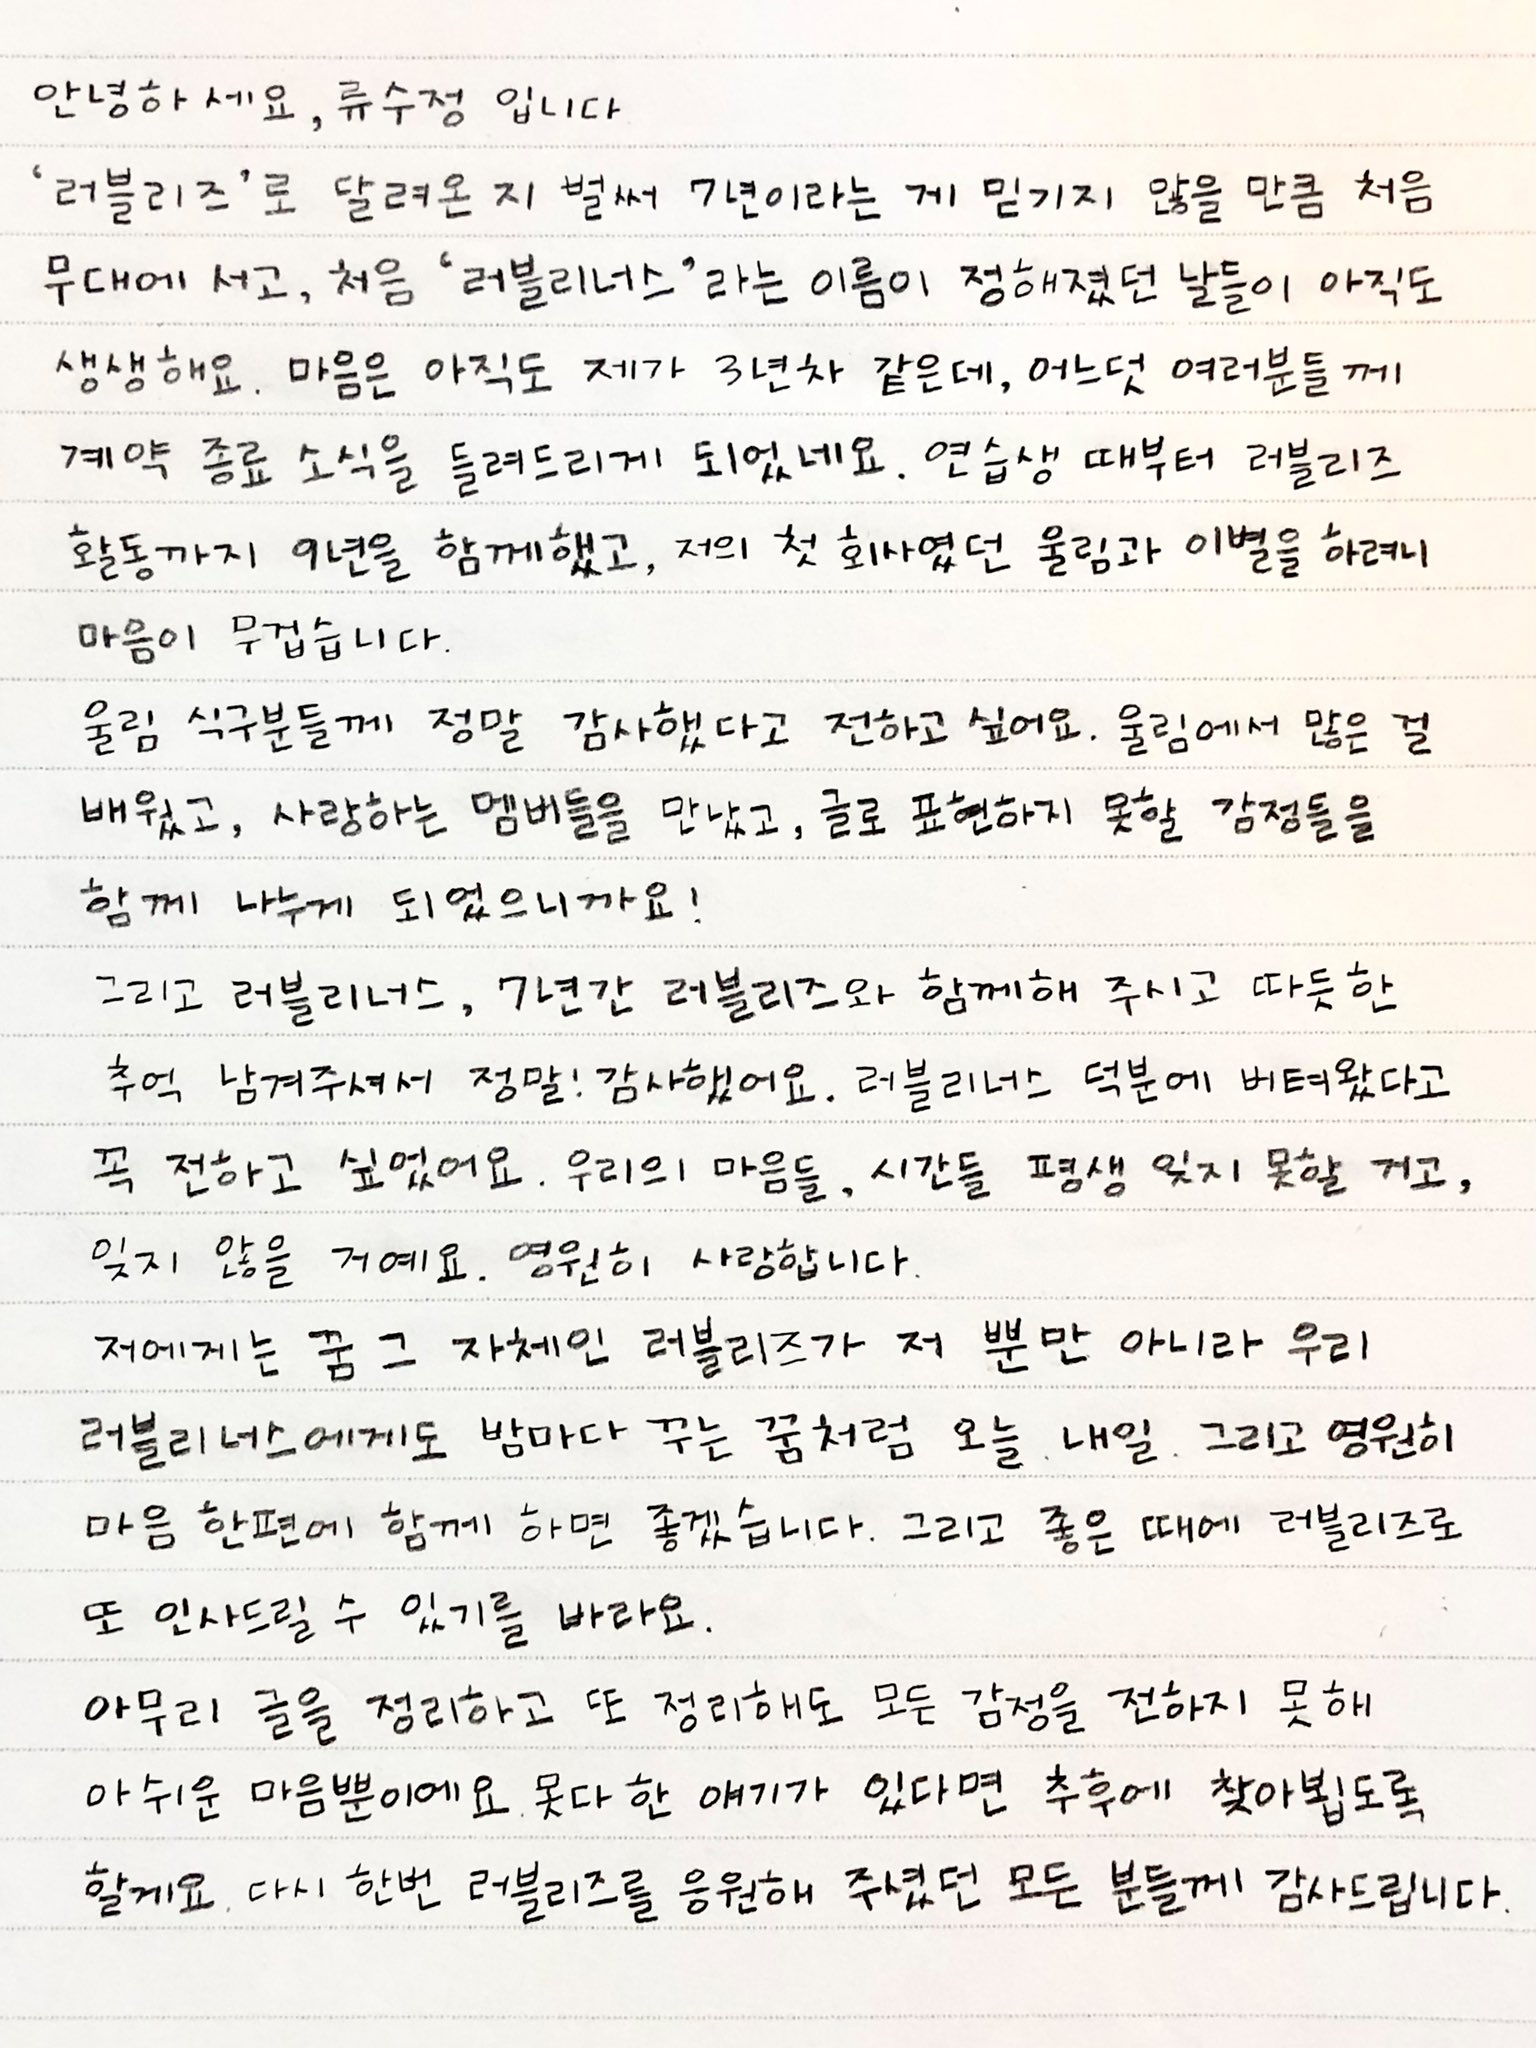 안녕하세요, 류수정 입니다
'러블리즈'로 달려온 지 벌써 7년이라는 게 믿기지 않을 만큼 처음
무대에 서고, 처음 '러블리너스'라는 이름이 정해졌던 날들이 아직도
생생해요. 마음은 아직도 제가 3년차 같은데, 어느덧 여러분들께
계약 종료 소식을 들려드리게 되었네요. 연습생 때부터 러블리즈
활동까지 9년을 함께했고, 저의 첫 회사였던 울림과 이별을 하려니
마음이 무겁습니다.
울림 식구분들께 정말 감사했다고 전하고 싶어요. 울림에서 많은 걸
배웠고, 사랑하는 멤버들을 만났고, 글로 표현하지 못할 감정들을
함께 나누게 되었으니까요!
그리고 러블리너스, 7년간 러블리즈와 함께해 주시고 따듯한
추억 남겨주셔서 정말! 감사했어요. 러블리너스 덕분에 버텨왔다고
꼭 전하고 싶었어요. 우리의 마음들, 시간들 평생 잊지 못할 거고,
잊지 않을 거예요. 영원히 사랑합니다.
저에게는 꿈 그 자체인 러블리즈가 저 뿐만 아니라 우리
러블리너스에게도 밤마다 꾸는 꿈처럼 오늘. 내일. 그리고 영원히
마음 한편에 함께 하면 좋겠습니다. 그리고 좋은 때에 러블리즈로
또 인사드릴 수 있기를 바라요.
아무리 글을 정리하고 또 정리해도 모든 감정을 전하지 못해
아쉬운 마음뿐이에요. 못다 한 얘기가 있다면 추후에 찾아뵙도록
할게요. 다시 한번 러블리즈를 응원해 주셨던 모든 분들께 감사드립니다.